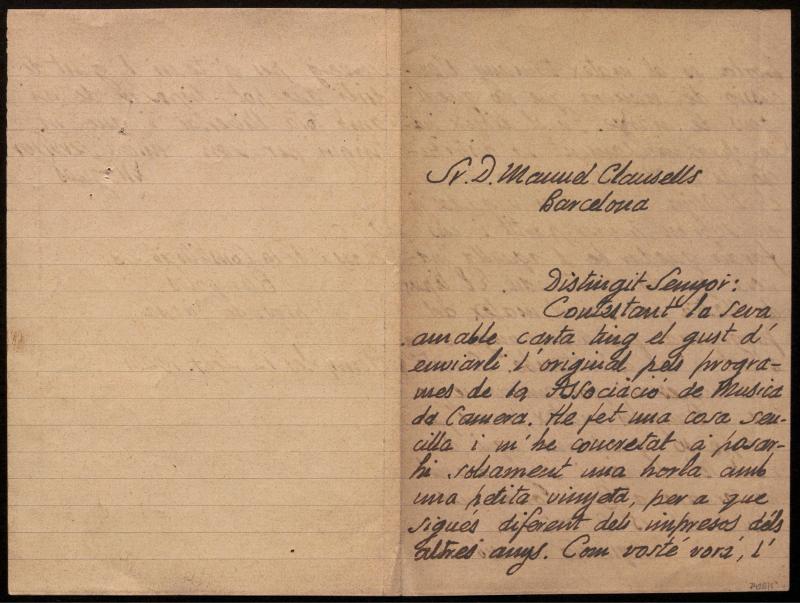 Sr. D. Manuel Clausells
Barcelona
Distingit Senyor:
Contestant la seva
amable carta ting el gust d'
enviarli l'original pels progra-
mes de la Associació de Musica
da Camera. He fet una cosa sen-
cilla i m'he concretat á posar-
hi solsament una horla amb
una petita vinyeta, per a que
sigués diferent dels impresos dels
altres anys. Com vosté vorá, l'